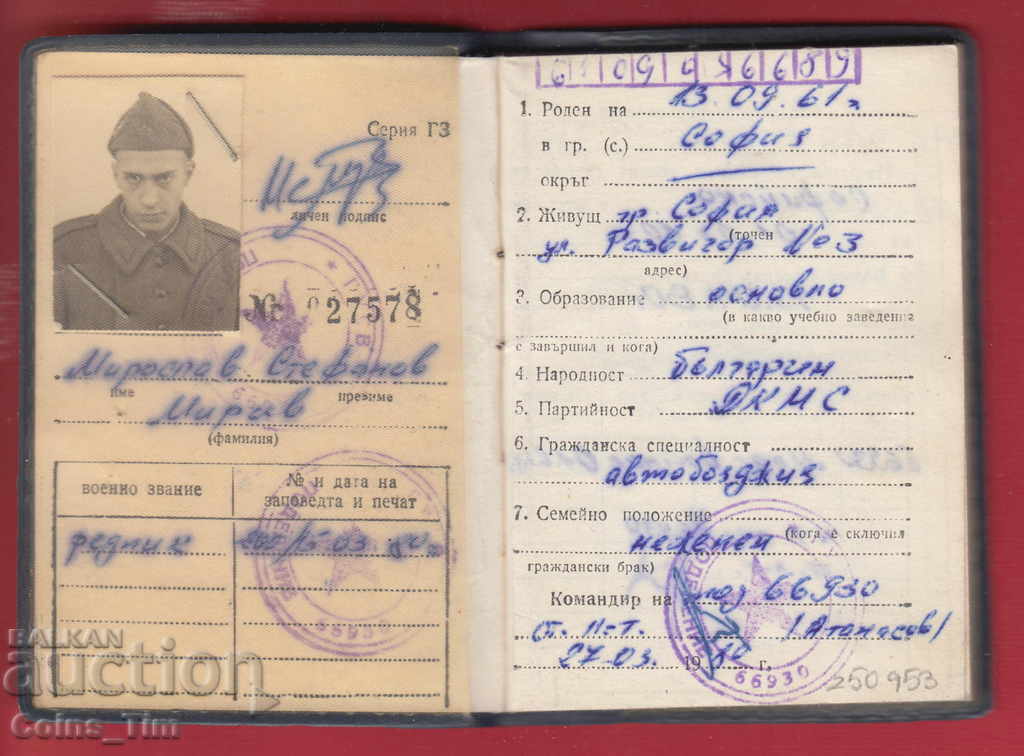 Серия ГЗ
личен подпис
№ 027578
Мирослав Стефанов
име презиме
Мирчев
(фамилия)
военно звание
№ и дата на заповедта и печат
редник 15.03.80
66930
1. Роден на 13.09.61 г.
в гр. (с.) София
окръг
2. Живущ гр. София
(точен
ул. Развигор № 3
адрес)
3. Образование основно
(в какво учебно заведение
е завършил и кога)
4. Народност Българин
5. Партийност ДКМС
6. Гражданска специалност
автобояджия
7. Семейно положение
неженен (кога е сключил
граждански брак)
Командир на под 66930
/Атанасов/
27.03. 1980 г.
66930
250953
BALKAN
auction
Coins_Tim